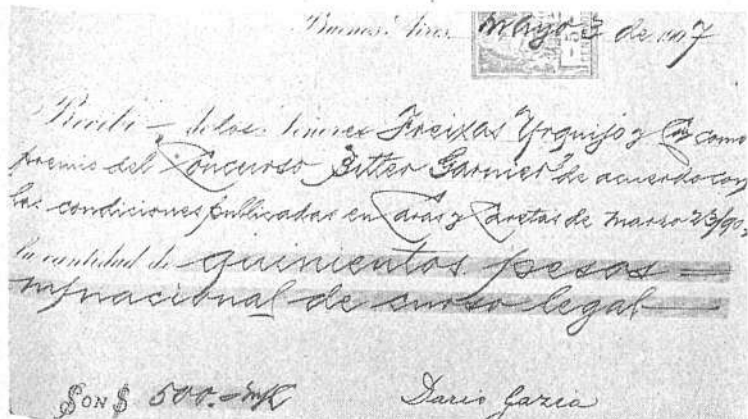 Buenos Aires, Mayo 3 de 1907
Recibí de los Señores Freixas Urquijo y Cía como
premio del Concurso "Bitter Garnier" de acuerdo con
las condiciones publicadas en Caras y Caretas de Marzo 23/907
la cantidad de quinientos pesos
m/nacional de curso legal
SON $ 500.- m/n
Dario Gazia